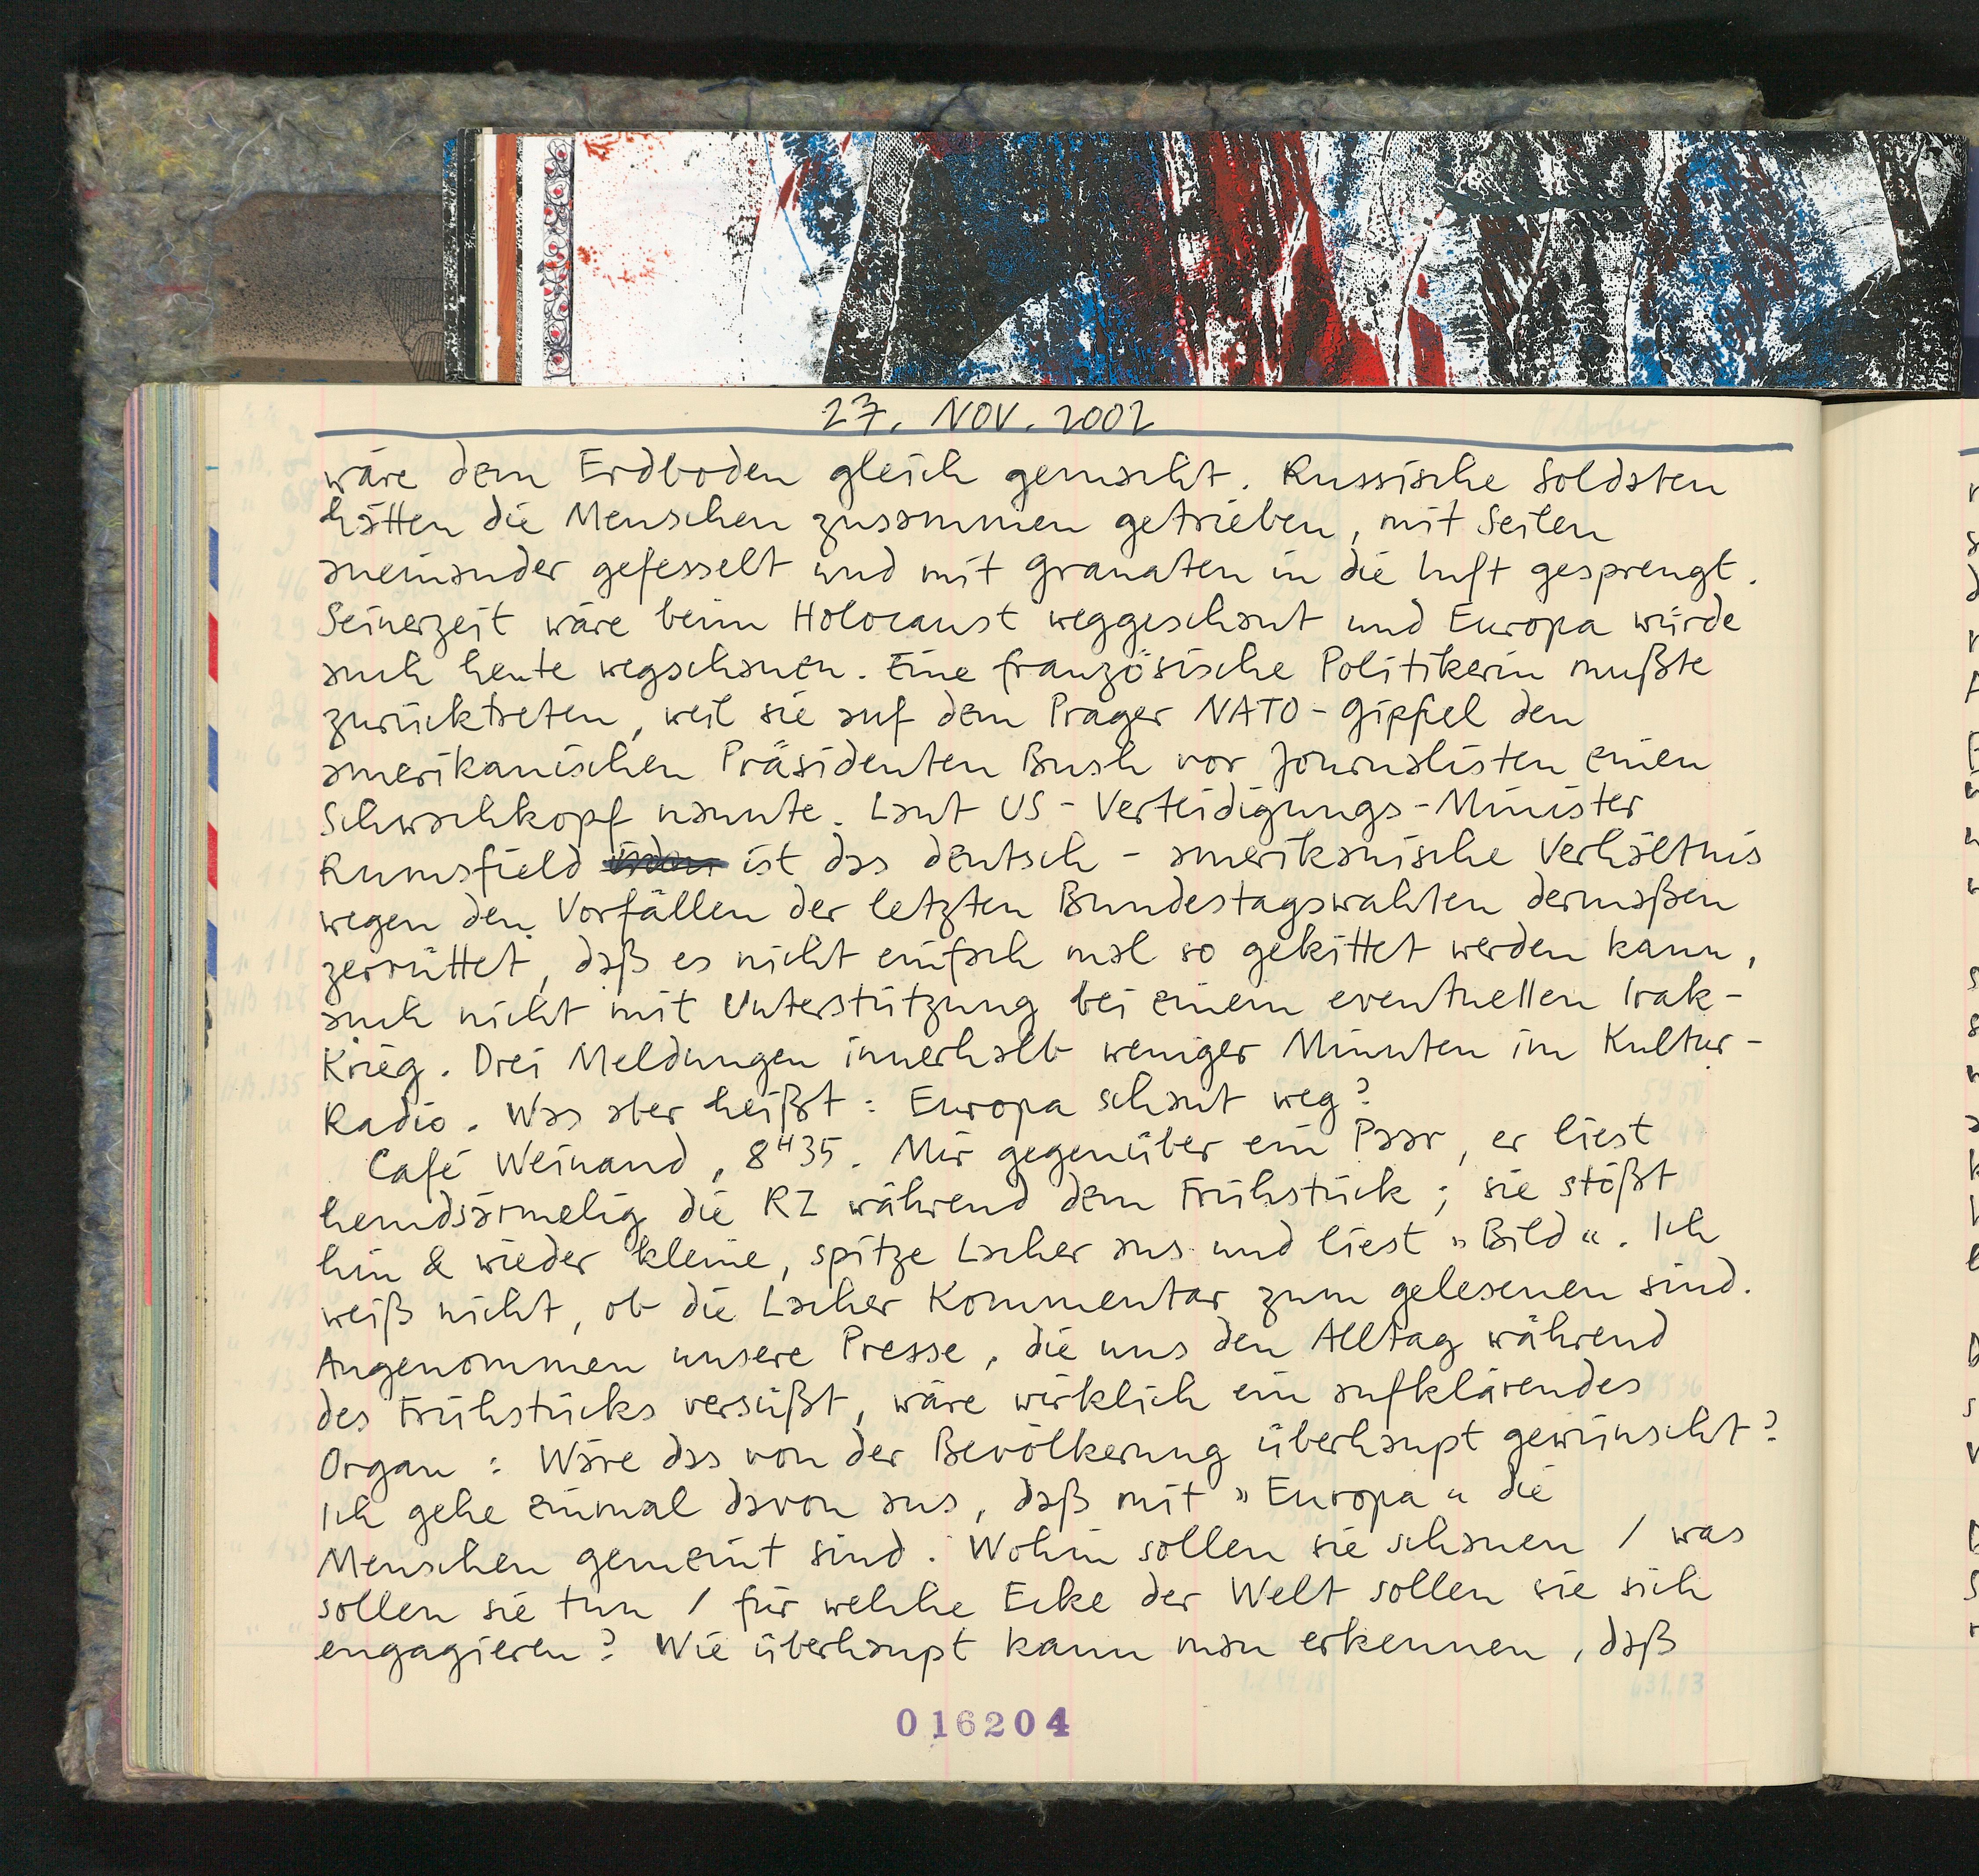 27. NOV. 2002
wäre dem Erdboden gleich gemacht. Russische Soldaten
hätten die Menschen zusammen getrieben, mit Seilen
aneinander gefesselt und mit Granaten in die Luft gesprengt.
Seinerzeit wäre beim Holocaust weggeschaut und Europa würde
auch heute wegschauen. Eine französische Politikerin mußte
zurücktreten, weil sie auf dem Prager NATO-Gipfel den
amerikanischen Präsidenten Bush vor Journalisten einen
Schwachkopf nannte. Laut US-Verteidigungs-Minister
Rumsfield ist das deutsch-amerikanische Verhältnis
wegen den Vorfällen der letzten Bundestagswahlen dermaßen
zerrüttet, daß es nicht einfach mal so gekittet werden kann,
auch nicht mit Unterstützung bei einem eventuellen Irak-
Krieg. Drei Meldungen innerhalb weniger Minuten im Kultur-
Radio. Was aber heißt: Europa schaut weg?
Café Weinand, 8H35. Mir gegenüber ein Paar, er liest
hemdsärmelig die RZ während dem Frühstück; sie stößt
hin & wieder kleine, spitze Lacher aus und liest »Bild«. Ich
weiß nicht, ob die Lacher Kommentar zum gelesenen sind.
Angenommen unsere Presse, die uns den Alltag während
des Frühstücks versüßt, wäre wirklich ein aufklärendes
Organ: Wäre das von der Bevölkerung überhaupt gewünscht?
Ich gehe einmal davon aus, daß mit »Europa« die
Menschen gemeint sind. Wohin sollen sie schauen / was
sollen sie tun / für welche Ecke der Welt sollen sie sich
engagieren? Wie überhaupt kann man erkennen, daß
016204